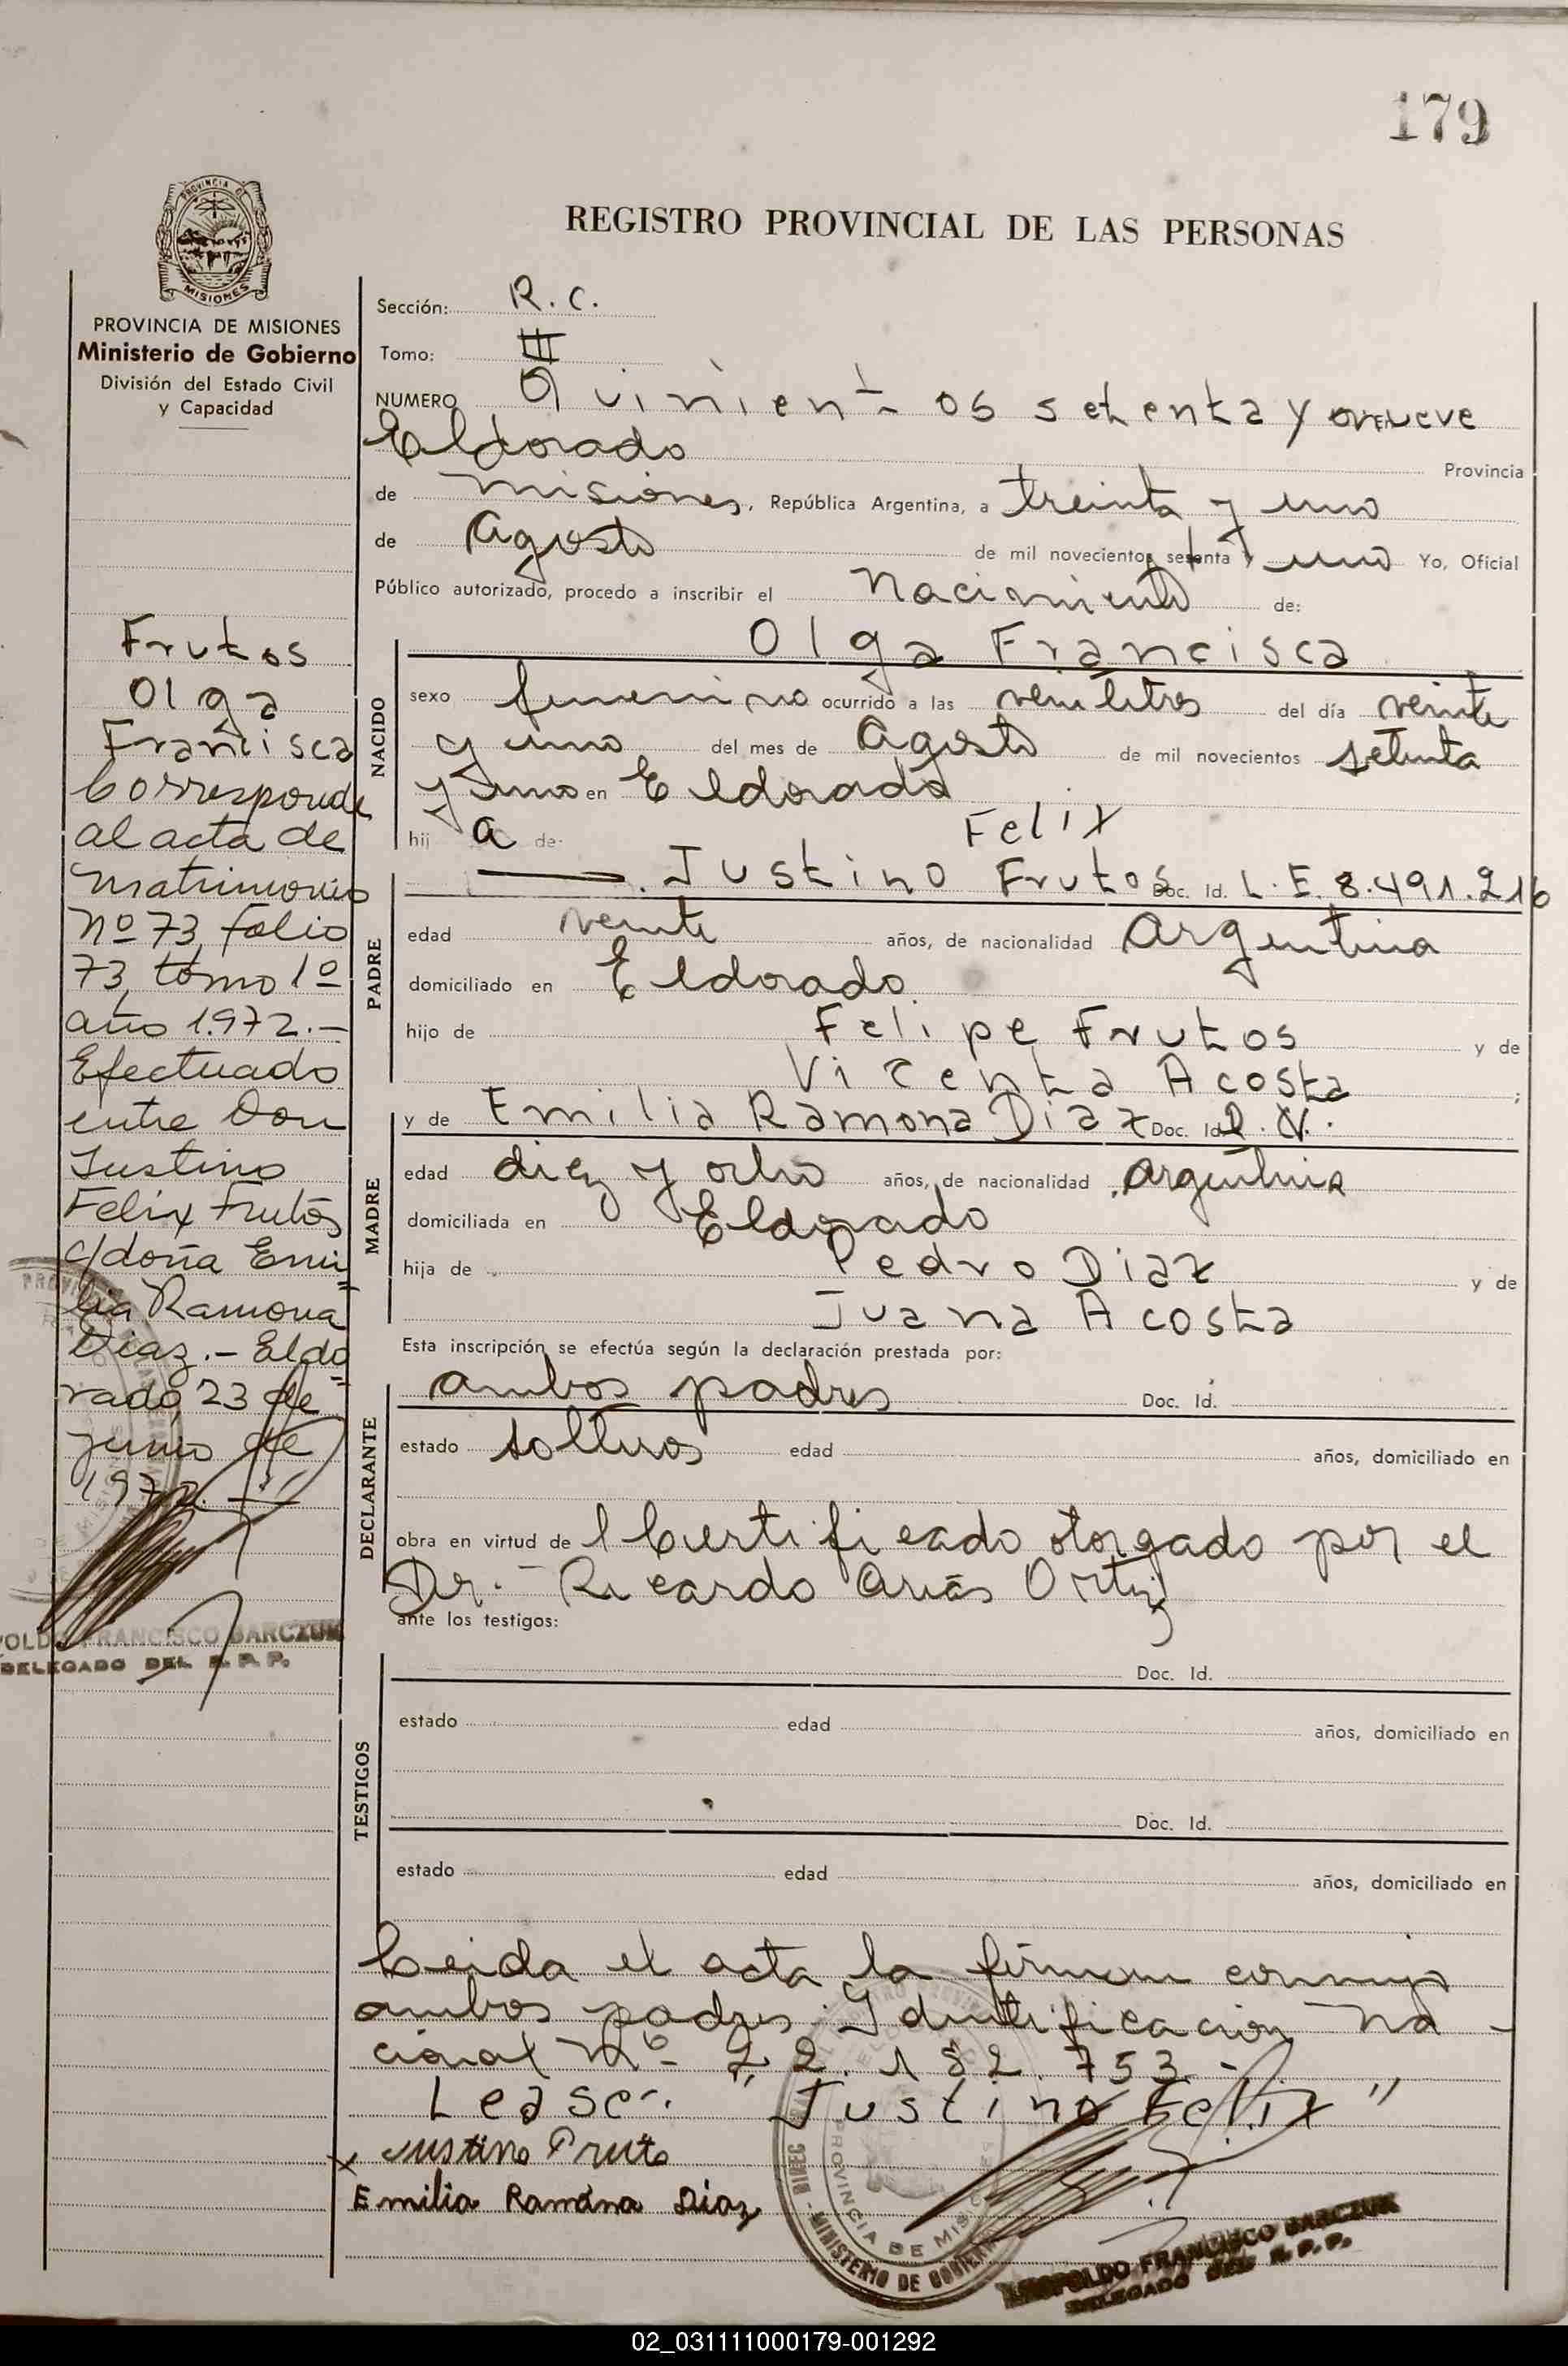 179
PROVINCIA DE MISIONES
Ministerio de Gobierno
División del Estado Civil
y Capacidad
REGISTRO PROVINCIAL DE LAS PERSONAS
Sección: R. C.
Tomo: III
NUMERO Quinientos setenta y nueve
Eldorado Provincia
de Misiones, República Argentina, a treinta y uno
de Agosto de mil novecientos setenta y uno Yo, Oficial
Público autorizado, procedo a inscribir el Nacimiento de:
NACIDO
Olga Francisca
sexo femenino ocurrido a las veintitres del día veinte
y uno del mes de Agosto de mil novecientos setenta
y uno en Eldorado
hij a de: Felix
PADRE
Justino Frutos Doc. Id. L.E. 8.491.216
edad veinte años, de nacionalidad Argentina
domiciliado en Eldorado
hijo de Felipe Frutos y de
Vicenta Acosta ;
MADRE
y de Emilia Ramona Diaz Doc. Id.
edad diez y ocho años, de nacionalidad Argentina
domiciliada en Eldorado
hija de Pedro Diaz y de
Juana Acosta
Esta inscripción se efectúa según la declaración prestada por:
DECLARANTE
ambos padres Doc. Id.
estado solteros edad años, domiciliado en
obra en virtud de l Certificado otorgado por el
Dr. Ricardo Arias Ortiz
ante los testigos:
TESTIGOS
Doc. Id.
estado edad años, domiciliado en
Doc. Id.
estado edad años, domiciliado en
Leida el acta la firman conmigo
ambos padres. Identificacion Na-
cional Nº 22.182.753.-
Lease: "Justino Felix"
x Justino Fruto
Emilia Ramona Diaz
LEOPOLDO FRANCISCO BARCZUK
DELEGADO DEL R. P. P.
Frutos
Olga
Francisca
Corresponde
al acta de
matrimonio
Nº 73, folio
73, tomo 1º
año 1.972.-
Efectuado
entre Don
Justino
Felix Frutos
c/doña Emi=
lia Ramona
Diaz.- Eldo=
rado, 23 de
junio de
1972.-
POLDO FRANCISCO BARCZUK
DELEGADO DEL R. P. P.
PROVINCIA DE MISIONES
MINISTERIO DE GOBIERNO
02_031111000179-001292